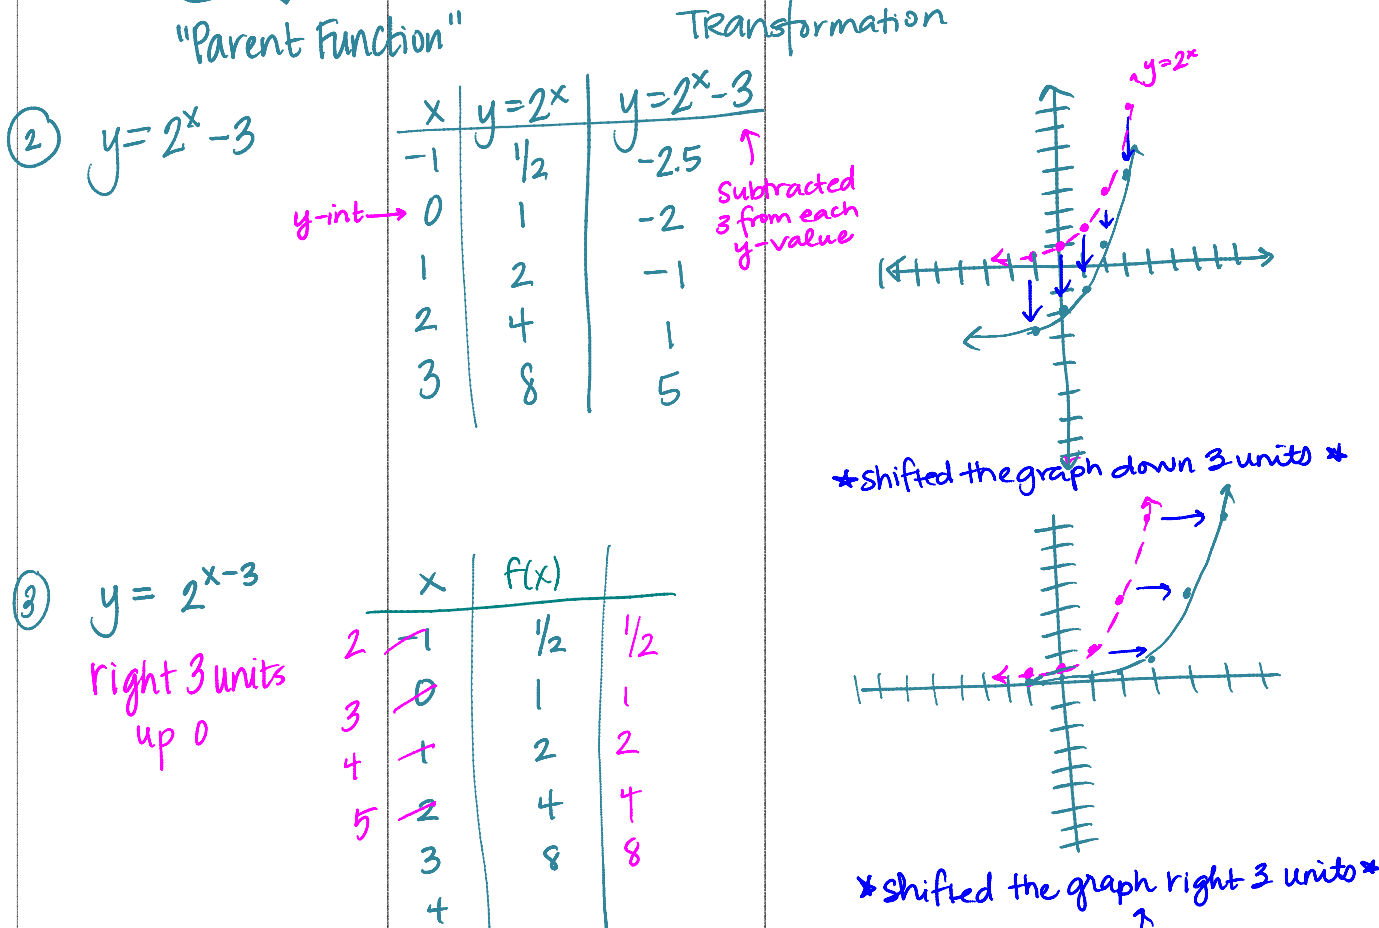 "Parent Function"
Transformation
② y=2ˣ-3
x y=2ˣ y=2ˣ-3
-1 1/2 -2.5
y-int→ 0 1 -2
1 2 -1
2 4 1
3 8 5
Subtracted
3 from each
y-value
y=2ˣ
*shifted the graph down 3 units*
③ y= 2ˣ⁻³
right 3 units
up 0
x f(x)
2 -1 1/2 1/2
3 0 1 1
4 1 2 2
5 2 4 4
3 8 8
4
*shifted the graph right 3 units*